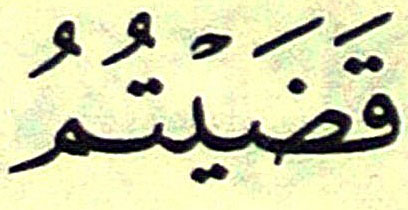 قَضَيْتُمُ